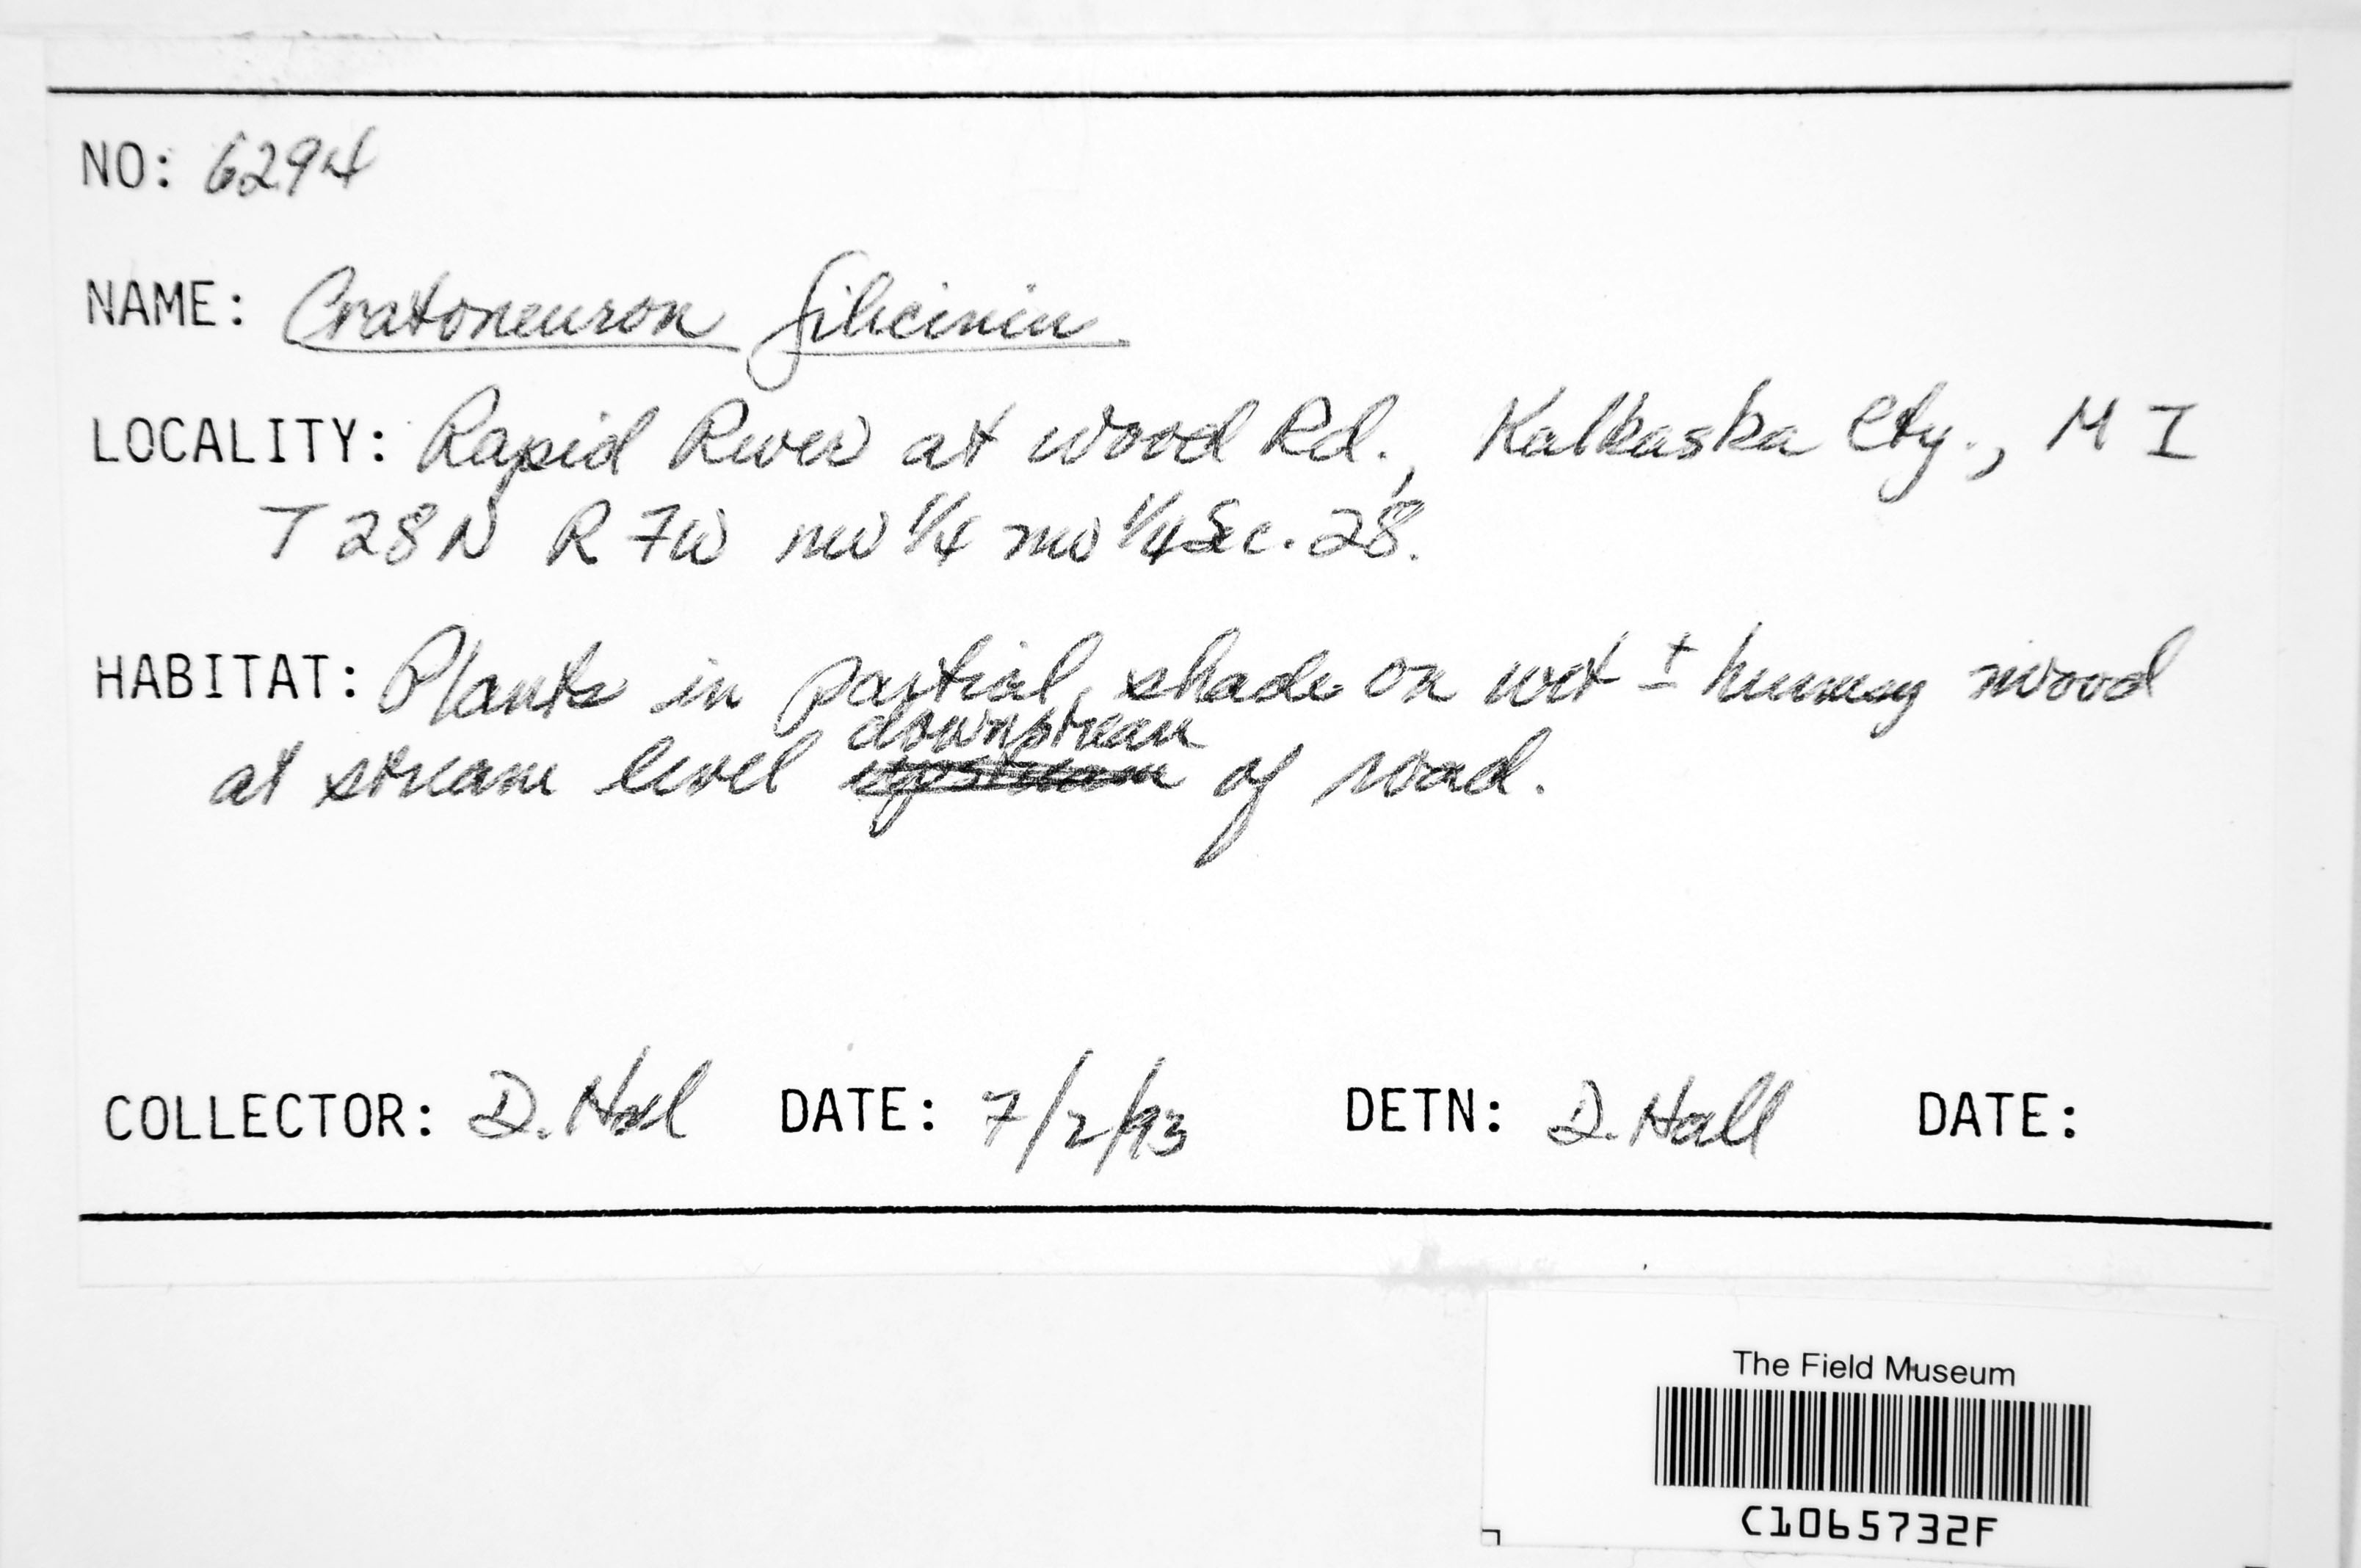 NO: 6294
NAME: Cratoneuron filicinum
LOCALITY: Rapid River at Wood Rd., Kalkaska Cty., MI
T28N R7W NW 1/4 NW 1/4 Sec. 28.
HABITAT: Plants in partial shade on wet ± hummy wood
downstream
at stream level upstream of road.
COLLECTOR: D. Hall DATE: 7/2/93 DETN: D. Hall DATE:
The Field Museum
C1065732F